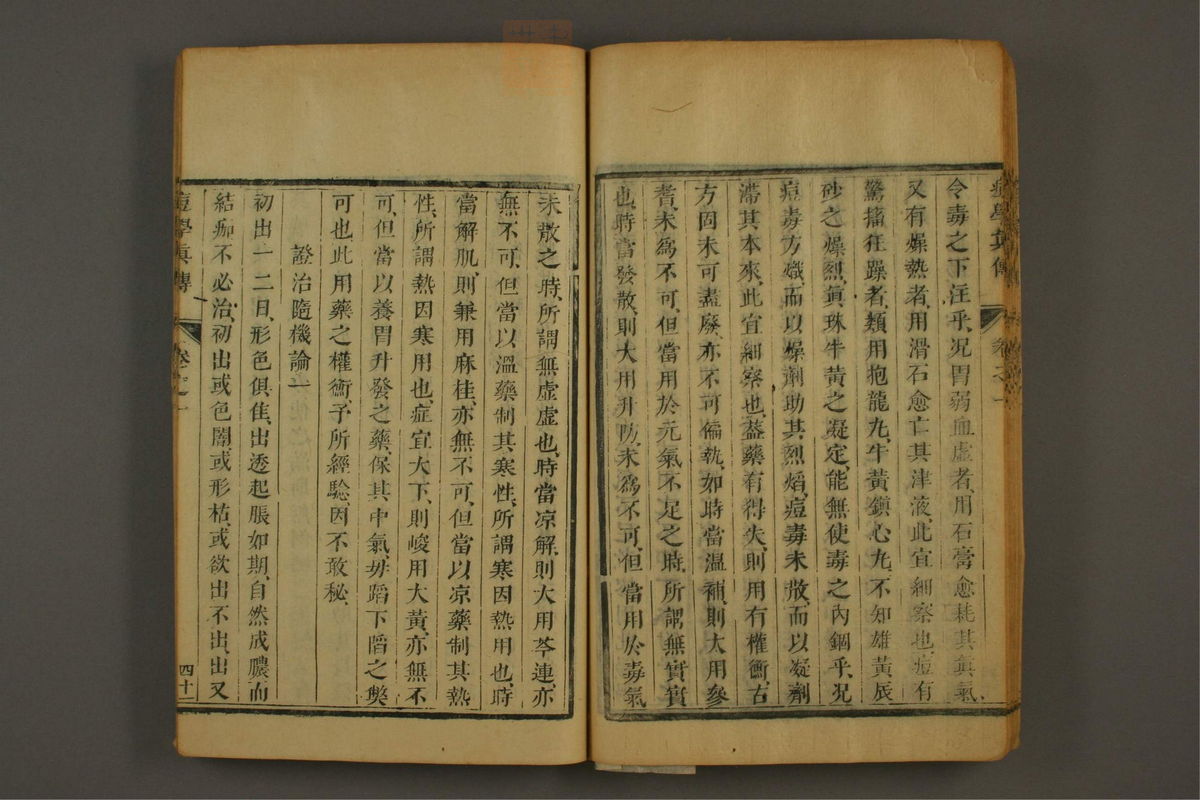 痘學真傳
卷之一
令毒之下注乎、况胃弱血虛者、用石膏愈耗其眞氣
又有燥熱者、用滑石愈亡其津液、此宜細察也、痘有
驚搐狂躁者、類用抱龍丸、牛黃鎭心丸、不知雄黃辰
砂之燥烈、眞珠牛黃之凝定、能無使毒之內錮乎、况
痘毒方熾、而以燥劑助其烈焰、痘毒未散、而以凝劑
滯其本來、此宜細察也、葢藥有得失、則用有權衡、古
方固未可盡廢、亦不可偏執、如時當溫補、則大用參
耆、未爲不可、但當用於元氣不足之時、所謂無實實
也、時當發散、則大用升防、未爲不可、但當用於毒氣
未散之時、所謂無虛虛也、時當凉解、則大用芩連、亦
無不可、但當以溫藥制其寒性、所謂寒因熱用也、時
當解肌、則兼用麻桂、亦無不可、但當以凉藥制其熱
性、所謂熱因寒用也、症宜大下、則峻用大黃、亦無不
可、但當以養胃升發之藥、保其中氣、毋蹈下䧟之獘
可也、此用藥之權衡、予所經騐、因不敢秘、
證治隨機論一
初出一二日、形色俱隹、出透起脹如期、自然成膿而
結痂不必治、初出或色闇或形枯、或欲出不出、出又
痘學眞傳
卷之一
四十一